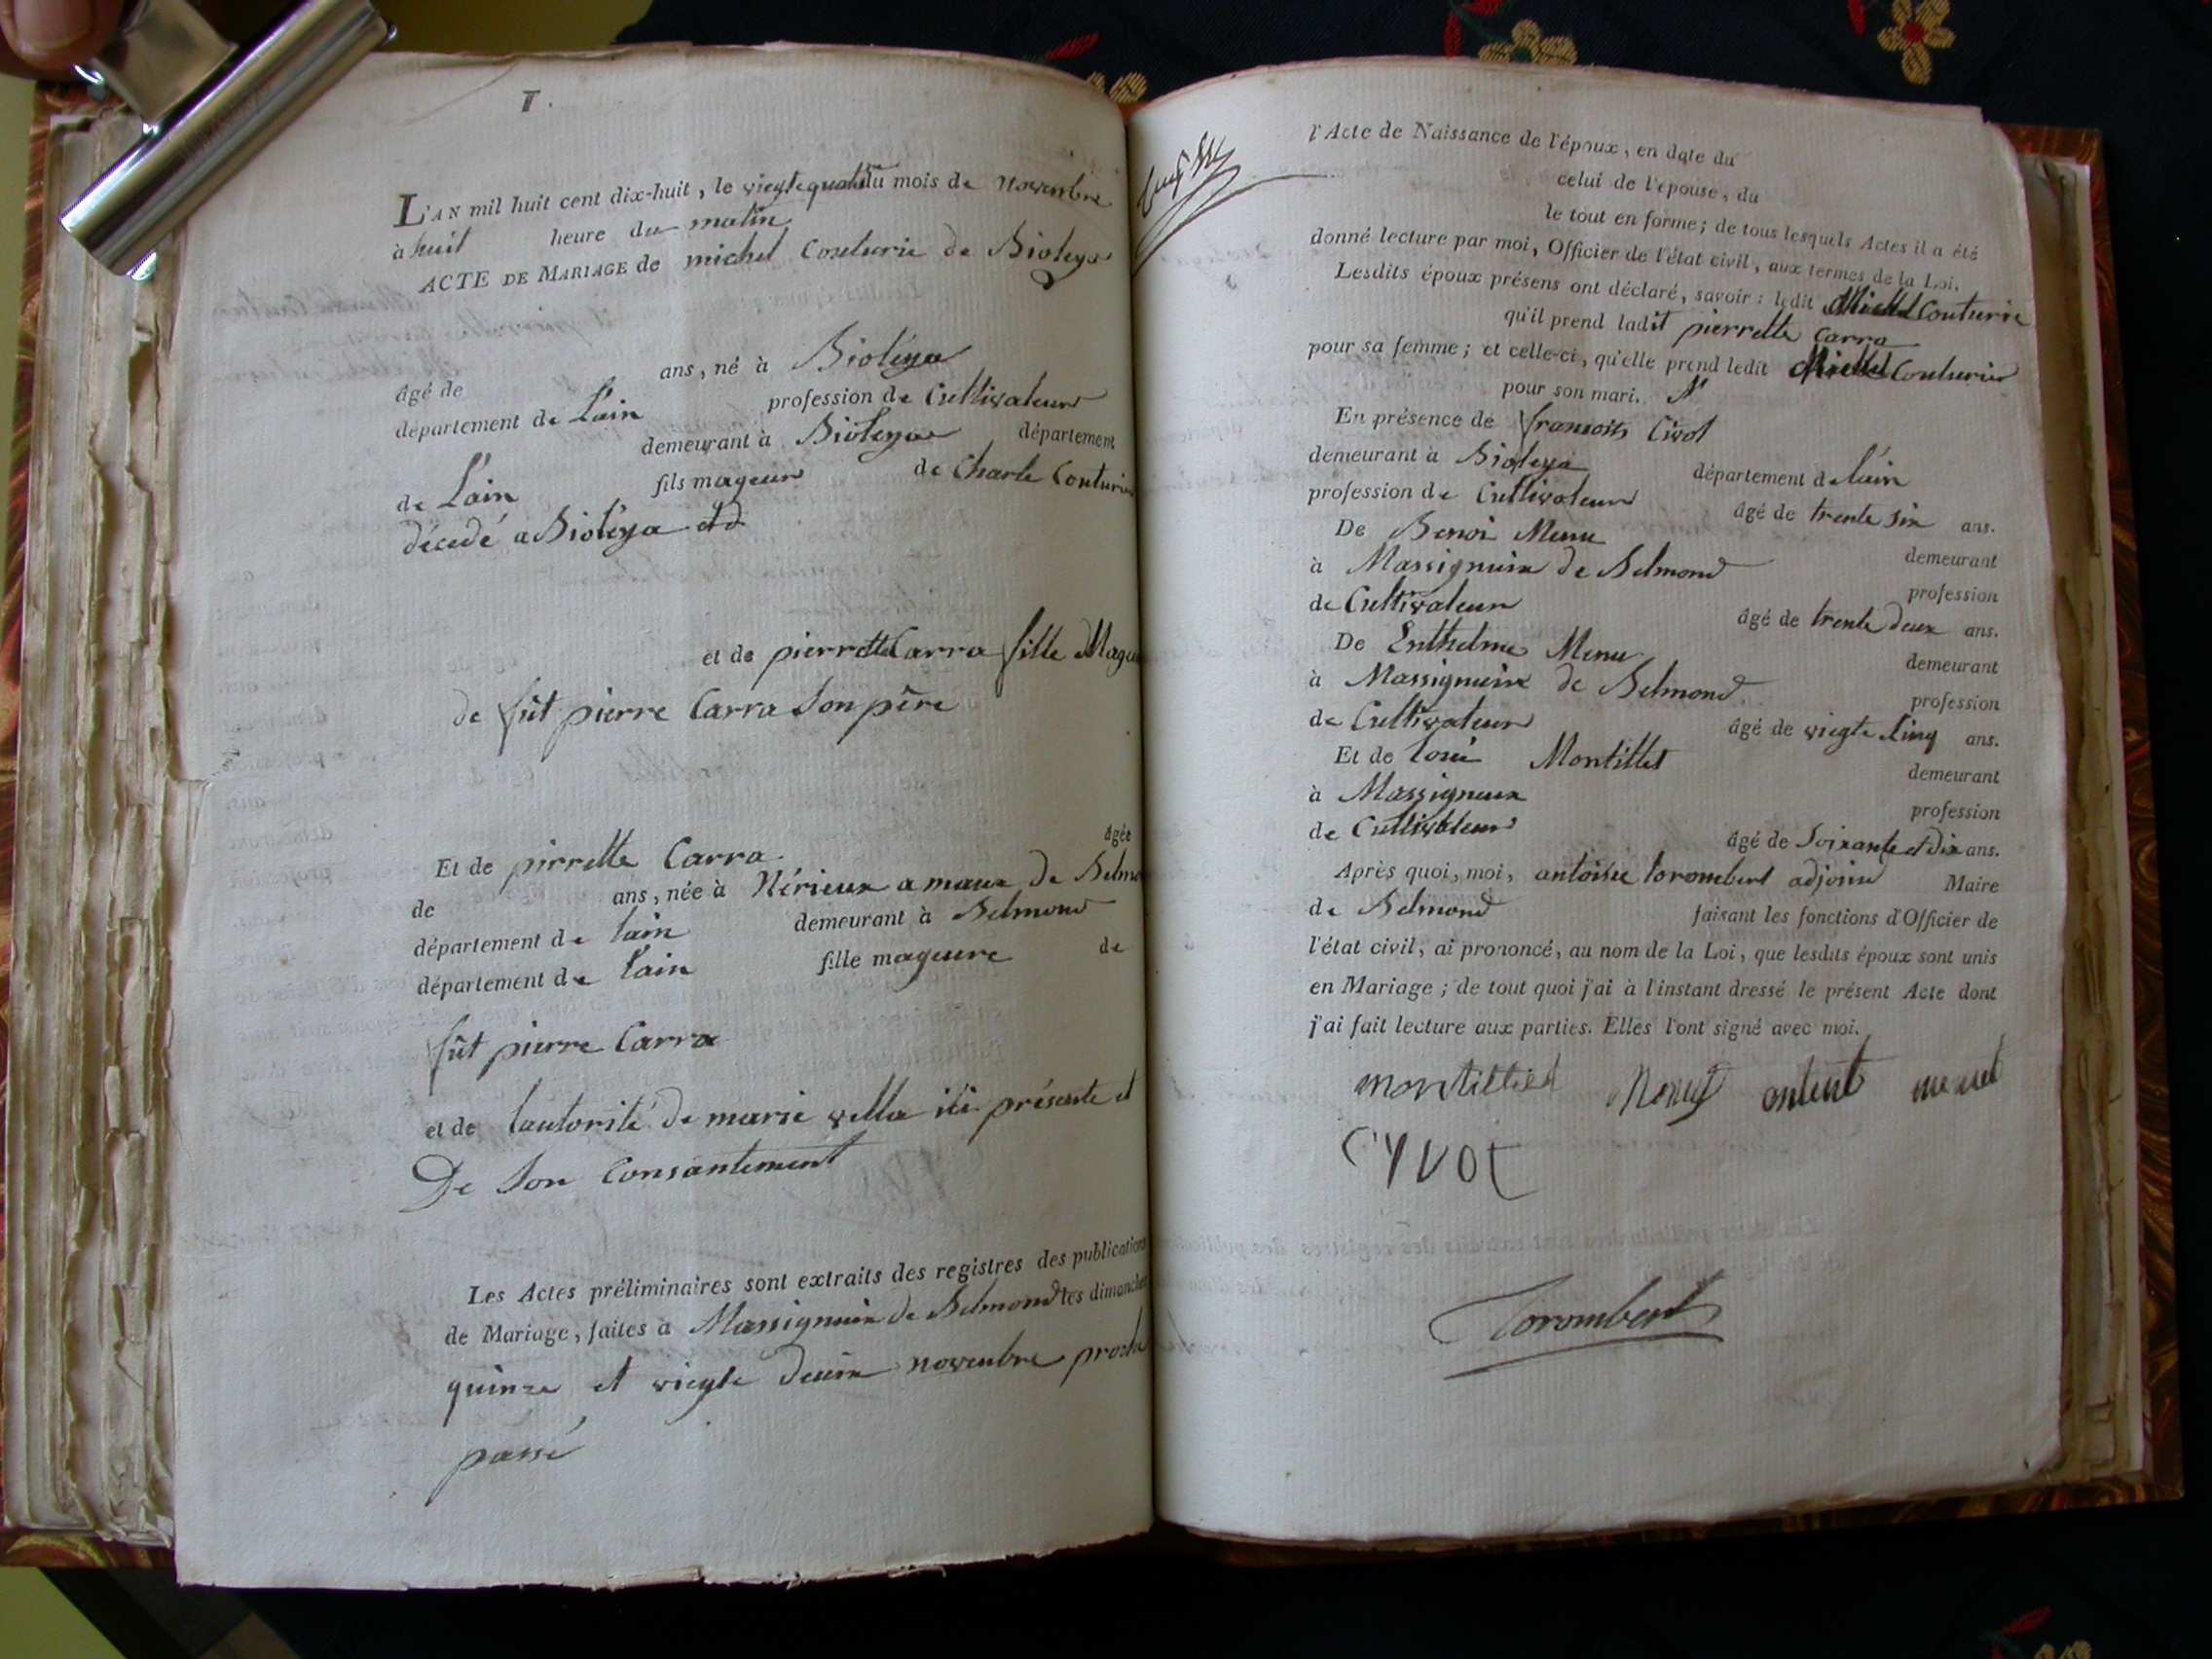 T.
L'AN mil huit cent dix-huit, le viegte quatre du mois de novembre
à huit heure du matin
ACTE DE MARIAGE de michel Couturie de Bioleya
âgé de ans, né à Bioléya
département de Lain profession de Cultivateur
demeurant à Bioleya département
de Lain fils mageur de Charle Couturie
décedé a Bioléya
et de pierrette Carra fille
de fût pierre Carra Son père
Et de pirrette Carra âgée
de ans, née à Nérieux amaux de
département de lain demeurant à Belmond
département de lain fille mageure de
fût pierre Carra
et de lautorité de marie vella ici présente et
De Son Consantement
Les Actes préliminaires sont extraits des registres des publications
de Mariage, faites à Massignuix de Belmond les dimanches
quinze et viegte deuix novembre proche
passé
l'Acte de Naissance de l'époux, en date du
celui de l'épouse, du
le tout en forme; de tous lesquels Actes il a été
donné lecture par moi, Officier de l'état civil, aux termes de la Loi.
Lesdits époux présens ont déclaré, savoir : ledit Michel Couturie
qu'il prend ladit pierrette Carra
pour sa femme; et celle-ci, qu'elle prend ledit Michel Couturie
pour son mari.
En présence de fransois Civot
demeurant à Bioleya département de lain
profession de Cultivateur âgé de trente six ans.
De Benoi Menu demeurant
à Massignuix de Belmond profession
de Cultivateur âgé de trente deux ans.
De Enthelme Menu demeurant
à Massignuix de Belmond profession
de Cultivateur âgé de viegte cinq ans.
Et de Loui Montillet demeurant
à Massigneux profession
de Cultivateur âgé de Soixante et dix ans.
Après quoi, moi, antoine torombert adjoint Maire
de Belmond faisant les fonctions d'Officier de
l'état civil, ai prononcé, au nom de la Loi, que lesdits époux sont unis
en Mariage; de tout quoi j'ai à l'instant dressé le présent Acte dont
j'ai fait lecture aux parties. Elles l'ont signé avec moi.
montillet
CYVOt
Torombert